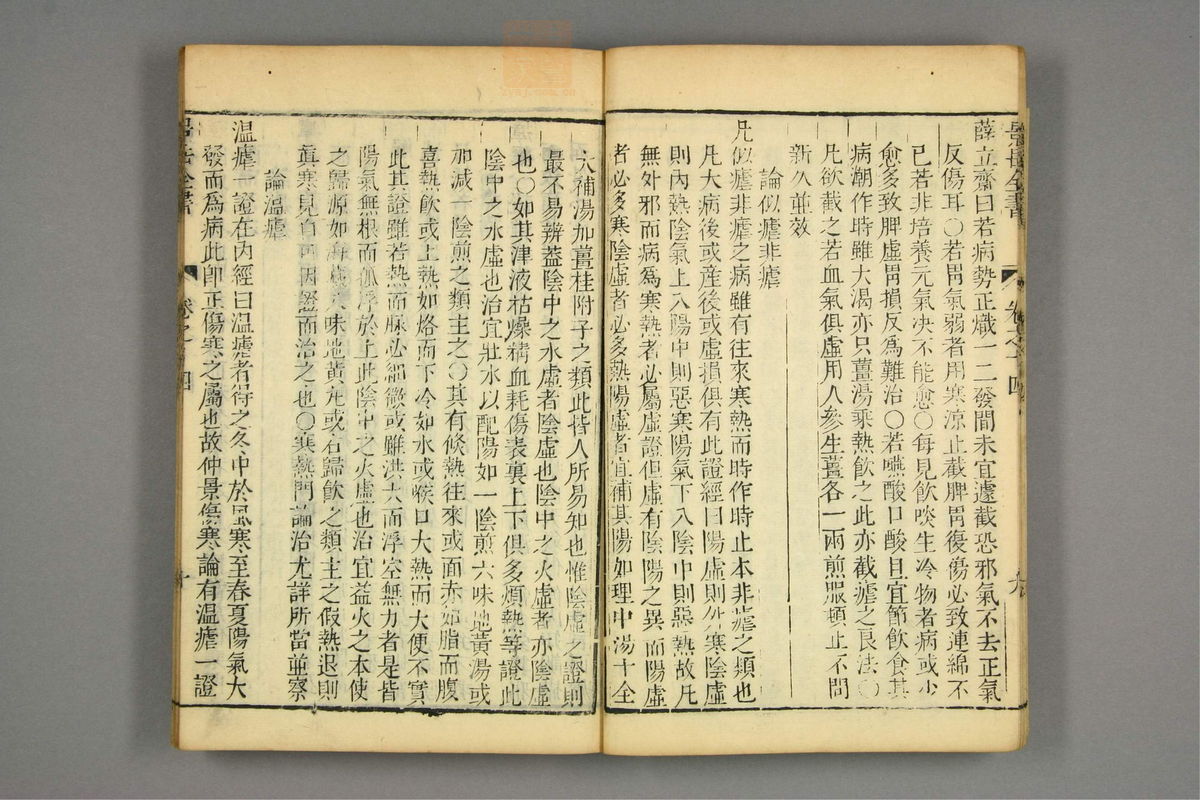 景岳全書 卷之十四 九
薛立齋曰若病勢正熾一二發間未宜遽截恐邪氣不去正氣
反傷耳○若胃氣弱者用寒涼止截脾胃復傷必致連綿不
已若非培養元氣决不能愈○每見飲啖生冷物者病或少
愈多致脾虛胃損反爲難治○若嚥酸口酸且宜節飲食其
病潮作時雖大渴亦只薑湯乘熱飲之此亦截瘧之良法○
凡欲截之若血氣俱虛用人參生薑各一兩煎服頓止不問
新久並效
論似瘧非瘧
凡似瘧非瘧之病雖有往來寒熱而時作時止本非瘧之類也
凡大病後或産後或虛損俱有此證經曰陽虛則外寒陰虛
則內熱陰氣上入陽中則惡寒陽氣下入陰中則惡熱故凡
無外邪而病爲寒熱者必屬虛證但虛有陰陽之異而陽虛
者必多寒陰虛者必多熱陽虛者宜補其陽如理中湯十全
大補湯加薑桂附子之類此皆人所易知也惟陰虛之證則
最不易辨葢陰中之水虛者陰虛也陰中之火虛者亦陰虛
也○如其津液枯燥精血耗傷表裏上下俱多煩熱等證此
陰中之水虛也治宜壯水以配陽如一陰煎六味地黃湯或
加減一陰煎之類主之○其有倐熱往來或面赤如脂而腹
喜熱飲或上熱如烙而下冷如水或喉口大熱而大便不實
此其證雖若熱而脉必細微或雖洪大而浮空無力者是皆
陽氣無根而孤浮於上此陰中之火虛也治宜益火之本使
之歸源如海藏八味地黃丸或右歸飲之類主之假熱退則
眞寒見自可因證而治之也○寒熱門論治尤詳所當並察
論溫瘧
溫瘧一證在內經曰溫瘧者得之冬中於風寒至春夏陽氣大
發而爲病此卽正傷寒之屬也故仲景傷寒論有溫瘧一證
景岳全書 卷之十四 十